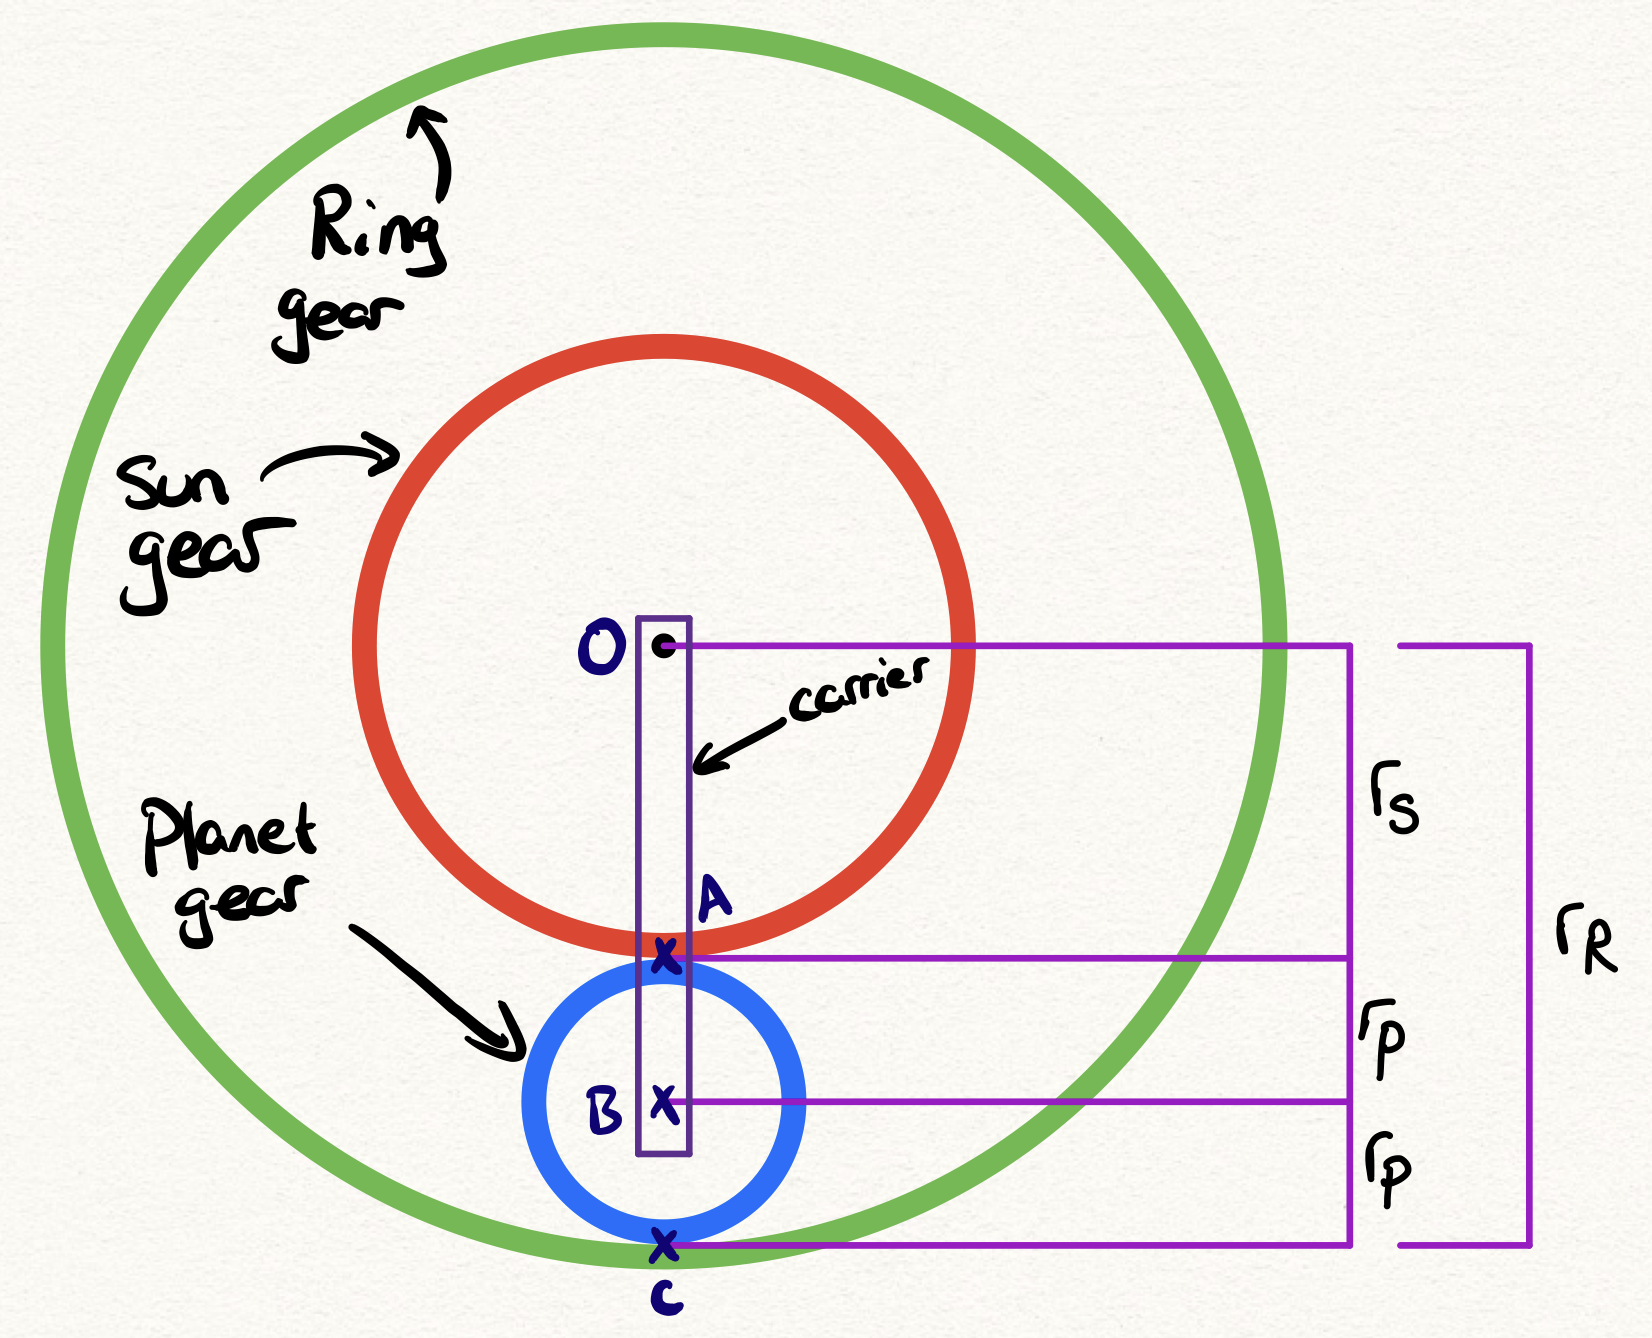 Ring
gear
Sun
gear
O
carrier
rs
Planet
gear
A
rR
rp
B
rp
C